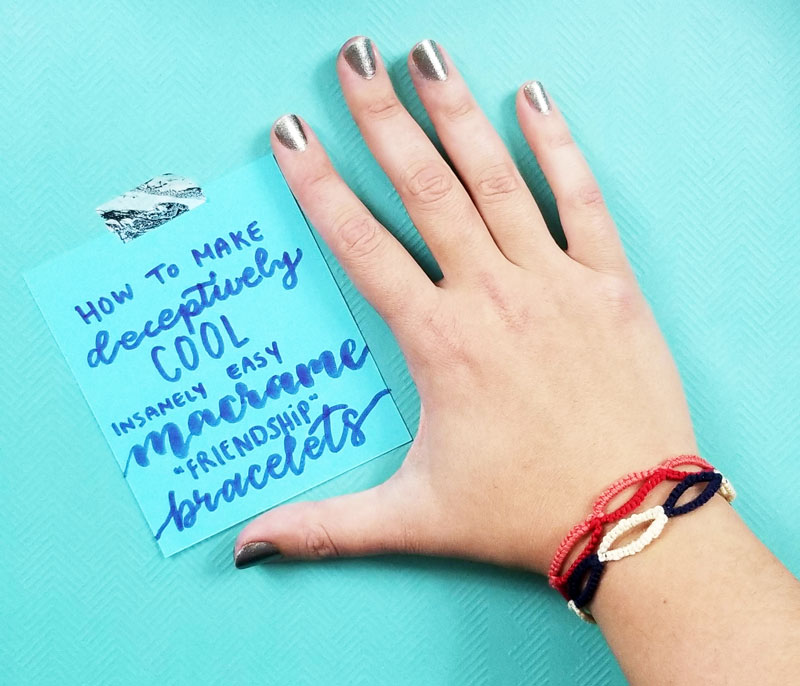 HOW TO MAKE
deceptively
COOL
INSANELY EASY
macrame
"FRIENDSHIP"
bracelets